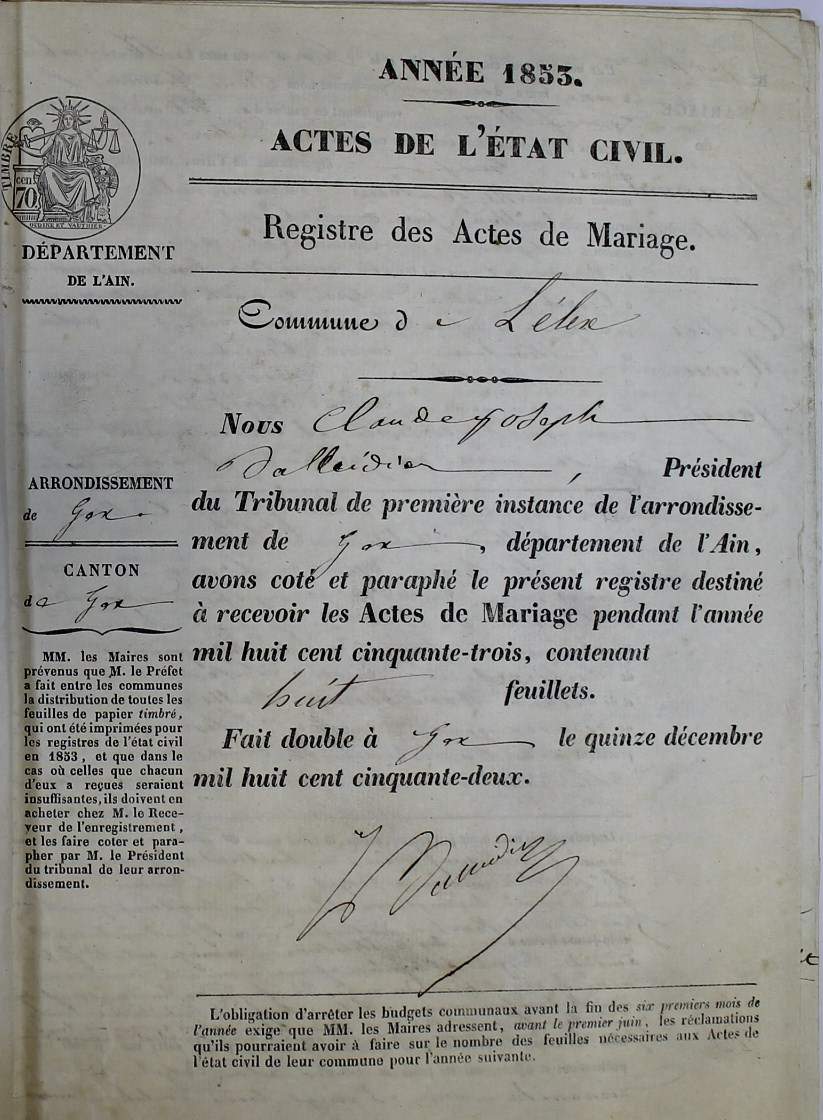 ANNÉE 1853.
ACTES DE L'ÉTAT CIVIL.
Registre des Actes de Mariage.
Commune de Lélex
TIMBRE
cen.
70
DÉPARTEMENT
DE L'AIN.
ARRONDISSEMENT
de Gex
CANTON
de Gex
MM. les Maires sont
prévenus que M. le Préfet
a fait entre les communes
la distribution de toutes les
feuilles de papier timbré,
qui ont été imprimées pour
les registres de l'état civil
en 1853, et que dans le
cas où celles que chacun
d'eux a reçues seraient
insuffisantes, ils doivent en
acheter chez M. le Rece-
veur de l'enregistrement,
et les faire coter et para-
pher par M. le Président
du tribunal de leur arron-
dissement.
Nous Claude Joseph
, Président
du Tribunal de première instance de l'arrondisse-
ment de Gex, département de l'Ain,
avons coté et paraphé le présent registre destiné
à recevoir les Actes de Mariage pendant l'année
mil huit cent cinquante-trois, contenant
huit feuillets.
Fait double à Gex le quinze décembre
mil huit cent cinquante-deux.
L'obligation d'arrêter les budgets communaux avant la fin des six premiers mois de
l'année exige que MM. les Maires adressent, avant le premier juin, les réclamations
qu'ils pourraient avoir à faire sur le nombre des feuilles nécessaires aux Actes de
l'état civil de leur commune pour l'année suivante.